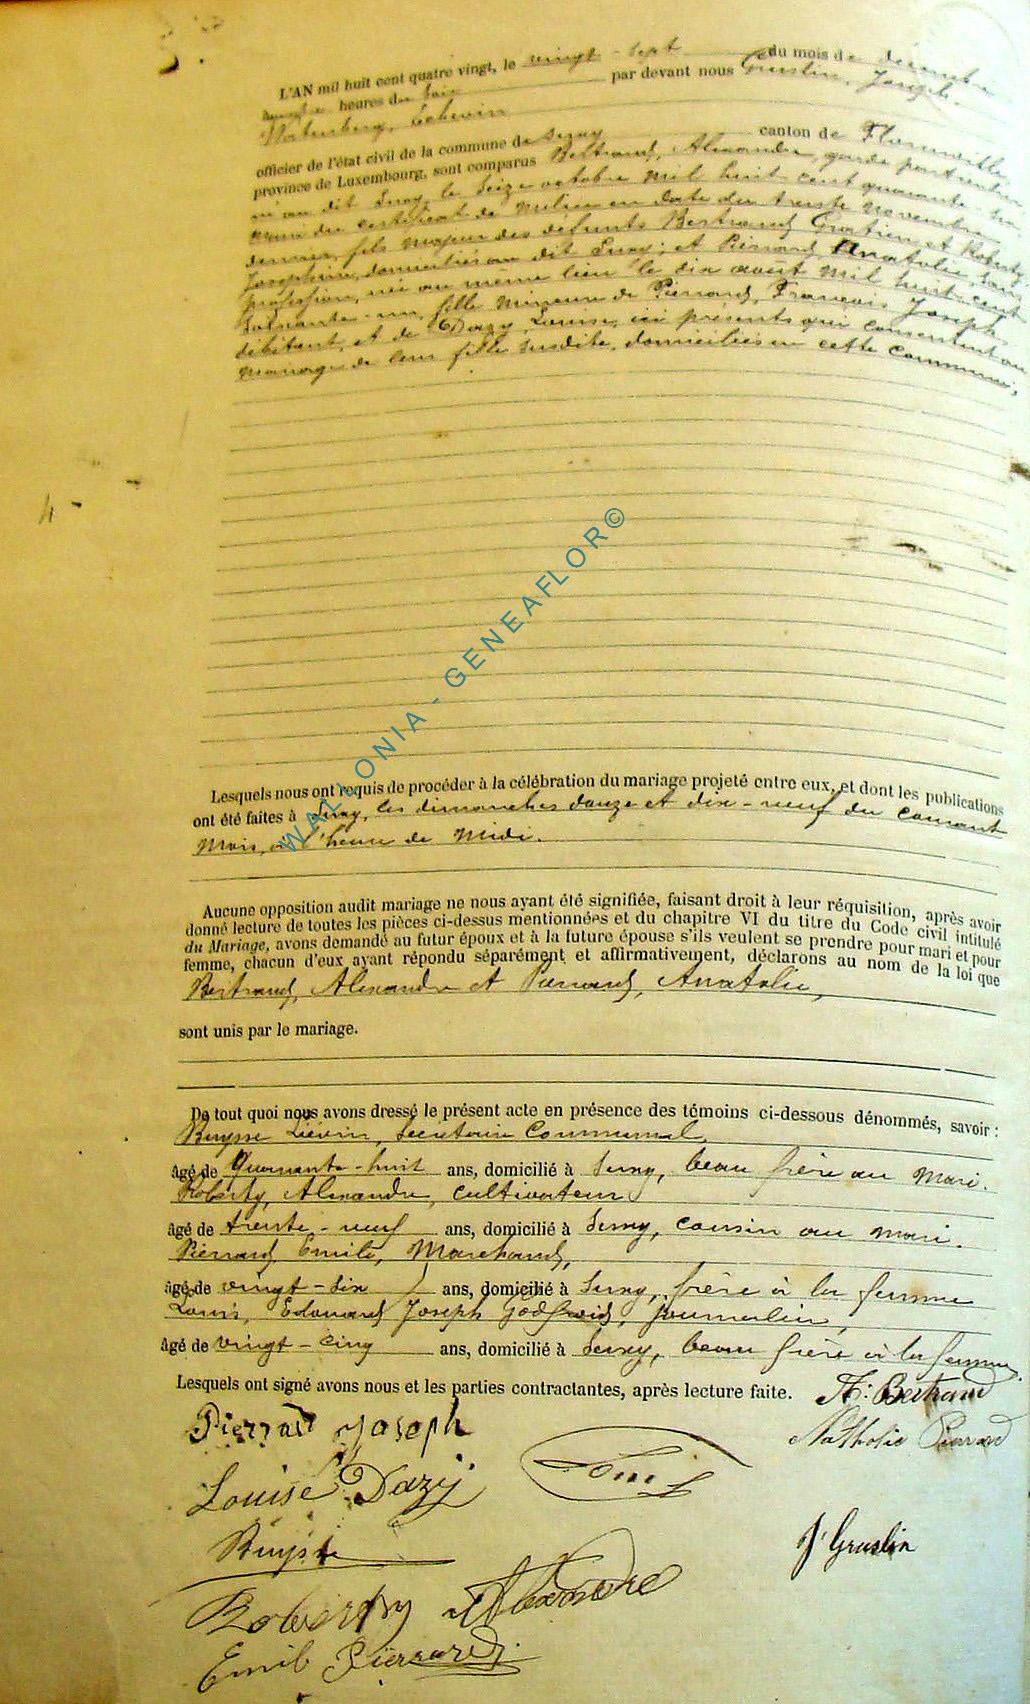 L'AN mil huit cent quatre vingt, le vingt-sept du mois de décembre
heures du soir par devant nous Gruslin, Joseph.
Echevin
officier de l'état civil de la commune de Suxy canton de Florenville
province de Luxembourg, sont comparus Bertrand, Alexandre, garde particulier
né au dit Suxy, le seize octobre mil huit cent quarante
muni du certificat de milice en date du trente novembre
dernier, fils majeur des défunts Bertrand Gratien et Roberty,
Joséphine, domiciliés au dit Suxy; et Pierrard, Anatolie, sans
profession, née au même lieu le dix août mil huit cent
soixante-un, fille mineure de Pierrard, François Joseph,
débitant, et de Dazy, Louise, ici présents qui consentent au
mariage de leur fille susdite, domiciliés en cette commune,
4 -
Lesquels nous ont requis de procéder à la célébration du mariage projeté entre eux, et dont les publications
ont été faites à Suxy, les dimanches douze et dix-neuf du courant
mois, à l'heure de midi.
Aucune opposition audit mariage ne nous ayant été signifiée, faisant droit à leur réquisition, après avoir
donné lecture de toutes les pièces ci-dessus mentionnées et du chapitre VI du titre du Code civil intitulé
du Mariage, avons demandé au futur époux et à la future épouse s'ils veulent se prendre pour mari et pour
femme, chacun d'eux ayant répondu séparément et affirmativement, déclarons au nom de la loi que
Bertrand, Alexandre et Pierrard, Anatolie,
sont unis par le mariage.
De tout quoi nous avons dressé le présent acte en présence des témoins ci-dessous dénommés, savoir :
Buysse Liévin, secrétaire communal,
âgé de quarante-huit ans, domicilié à Suxy, beau frère au mari.
Roberty, Alexandre, cultivateur
âgé de trente-neuf ans, domicilié à Suxy, cousin au mari.
Pierrard, Emile, marchand,
âgé de vingt-six ans, domicilié à Suxy, frère à la femme
Louis, Edouard Joseph Godfroid, journalier,
âgé de vingt-cinq ans, domicilié à Suxy, beau frère à la femme.
Lesquels ont signé avons nous et les parties contractantes, après lecture faite. A. Bertrand
Pierrard Joseph
Nathalie Pierrard
Louise Dazÿ
Louis
Buysse
J Gruslin
Roberty Alexandre
Emil Pierrard
WALLONIA - GENEAFLOR©